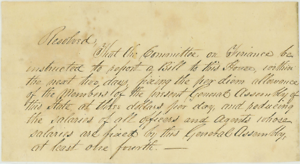 Resolved,
That the Committee on Finance be
instructed to report a Bill to this House, within
the next two days, fixing the per diem allowance
of the Members of the present General Assembly of
this State at three dollars per day, and reducing
the salaries of all officers and Agents whose
salaries are fixed by this General Assembly,
at least one fourth —